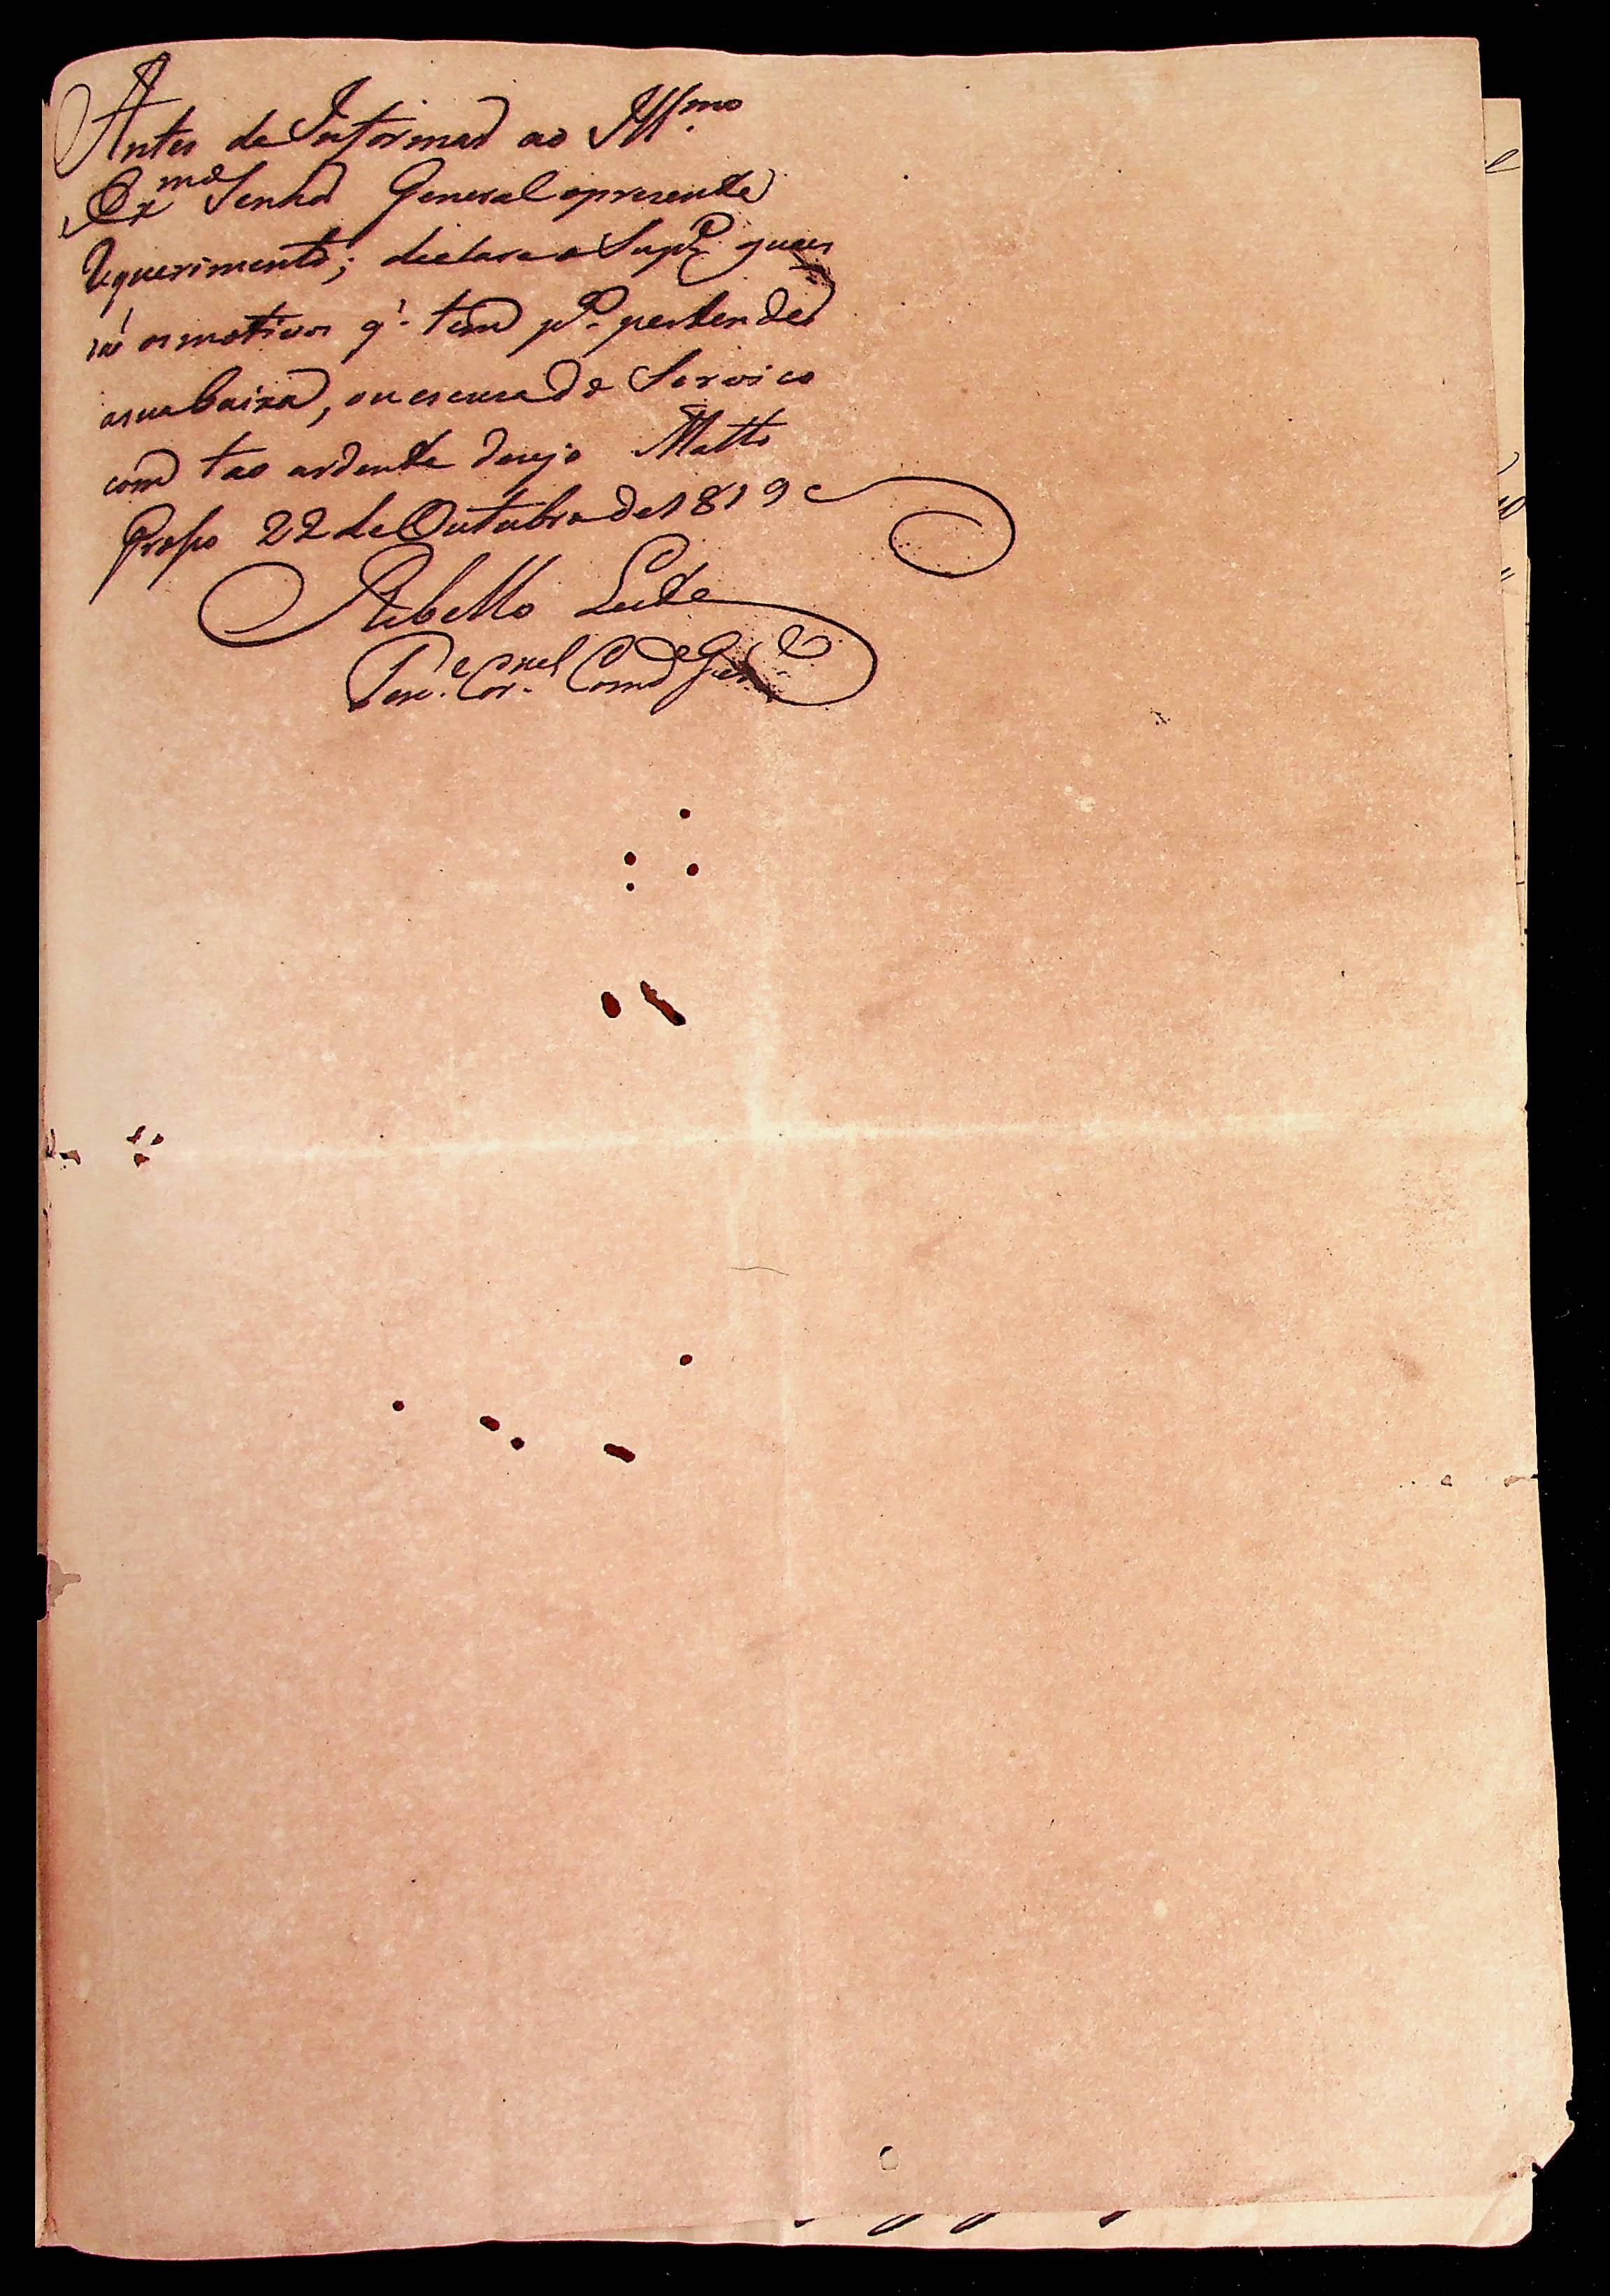 Antes de Informar ao Ill.mo
Ex.mo Senhor General o presente
Requerimento; declare o Sup.e quaes
são os motivos q' tem p.a pertender
a sua baixa, ou escusa de Servico
com tao ardente desejo Matto
Grosso 22 de Outubro de 1819
Rebello Leite
Ten.e Cor.nel Com.de G.er